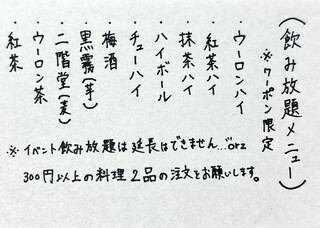 (飲み放題メニュー)
※クーポン限定
・ウーロンハイ
・紅茶ハイ
・抹茶ハイ
・ハイボール
・チューハイ
・梅酒
・黒霧(芋)
・二階堂(麦)
・ウーロン茶
・紅茶
※イベント飲み放題は延長はできません…orz
300円以上の料理2品の注文をお願いします。